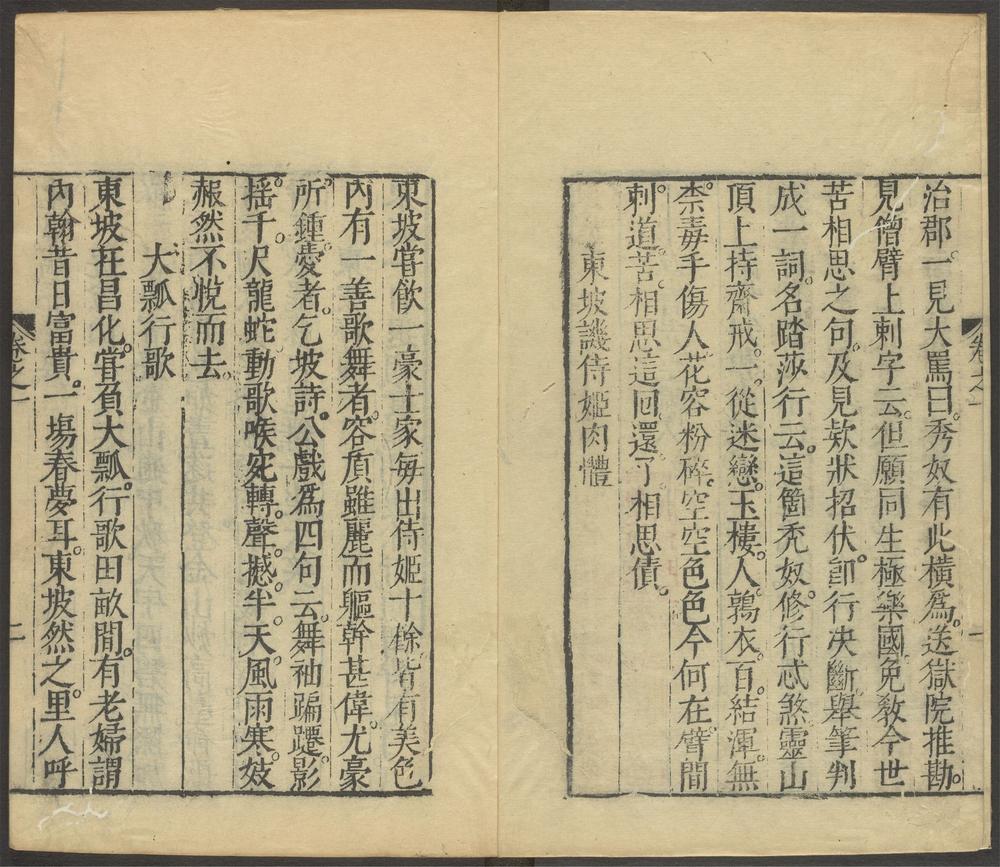 治郡。一見大罵曰。秀奴有此橫爲。送獄院推勘。
見僧臂上刺字云。但願同生極樂國。免教今世
苦相思之句。及見欵狀招伏。卽行决斷。舉筆判
成一詞。名踏莎行云。這箇禿奴。修行忒煞。靈山
頂上持齋戒。一從迷戀玉樓人。鶉衣百結渾無
柰。毒手傷人。花容粉碎。空空色色今何在。臂間
刺道苦相思。這囘還了相思債。
東坡譏侍姬肉體
卷之一
一
東坡嘗飲一豪士家。每出侍姬十餘。皆有美色
內有一善歌舞者。容質雖麗而軀幹甚偉。尤豪
所鍾愛者。乞坡詩。公戲爲四句云。舞袖蹁蹮。影
搖千尺龍蛇動。歌喉宛轉。聲撼半天風雨寒。妓
赧然不悅而去。
大瓢行歌
東坡在昌化。嘗負大瓢。行歌田畝間。有老婦謂
內翰昔日富貴。一塲春夢耳。東坡然之。里人呼
卷之一
二